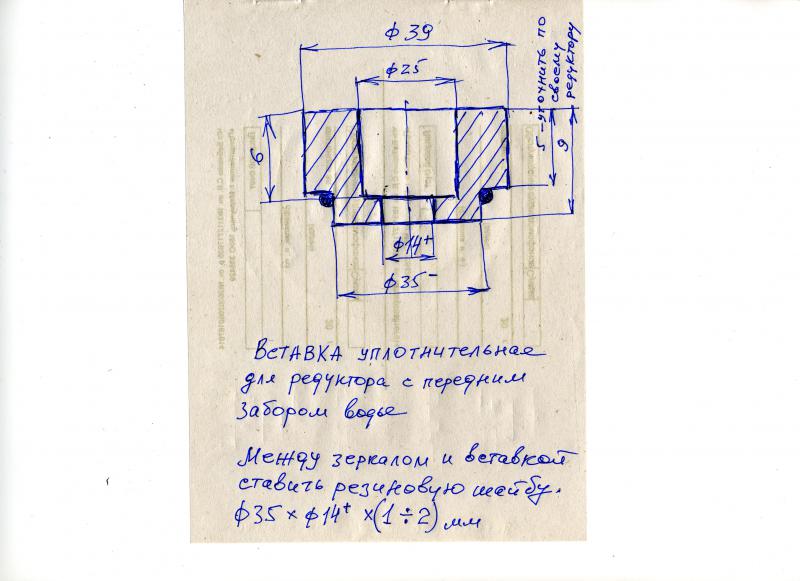 ф39
ф25
5 - уточнить по
своему
редуктору
6
9
ф14+
ф35-
Вставка уплотнительная
для редуктора с передним
забором воды
Между зеркалом и вставкой
ставить резиновую шайбу.
ф35 × ф14+ ×(1÷2) мм